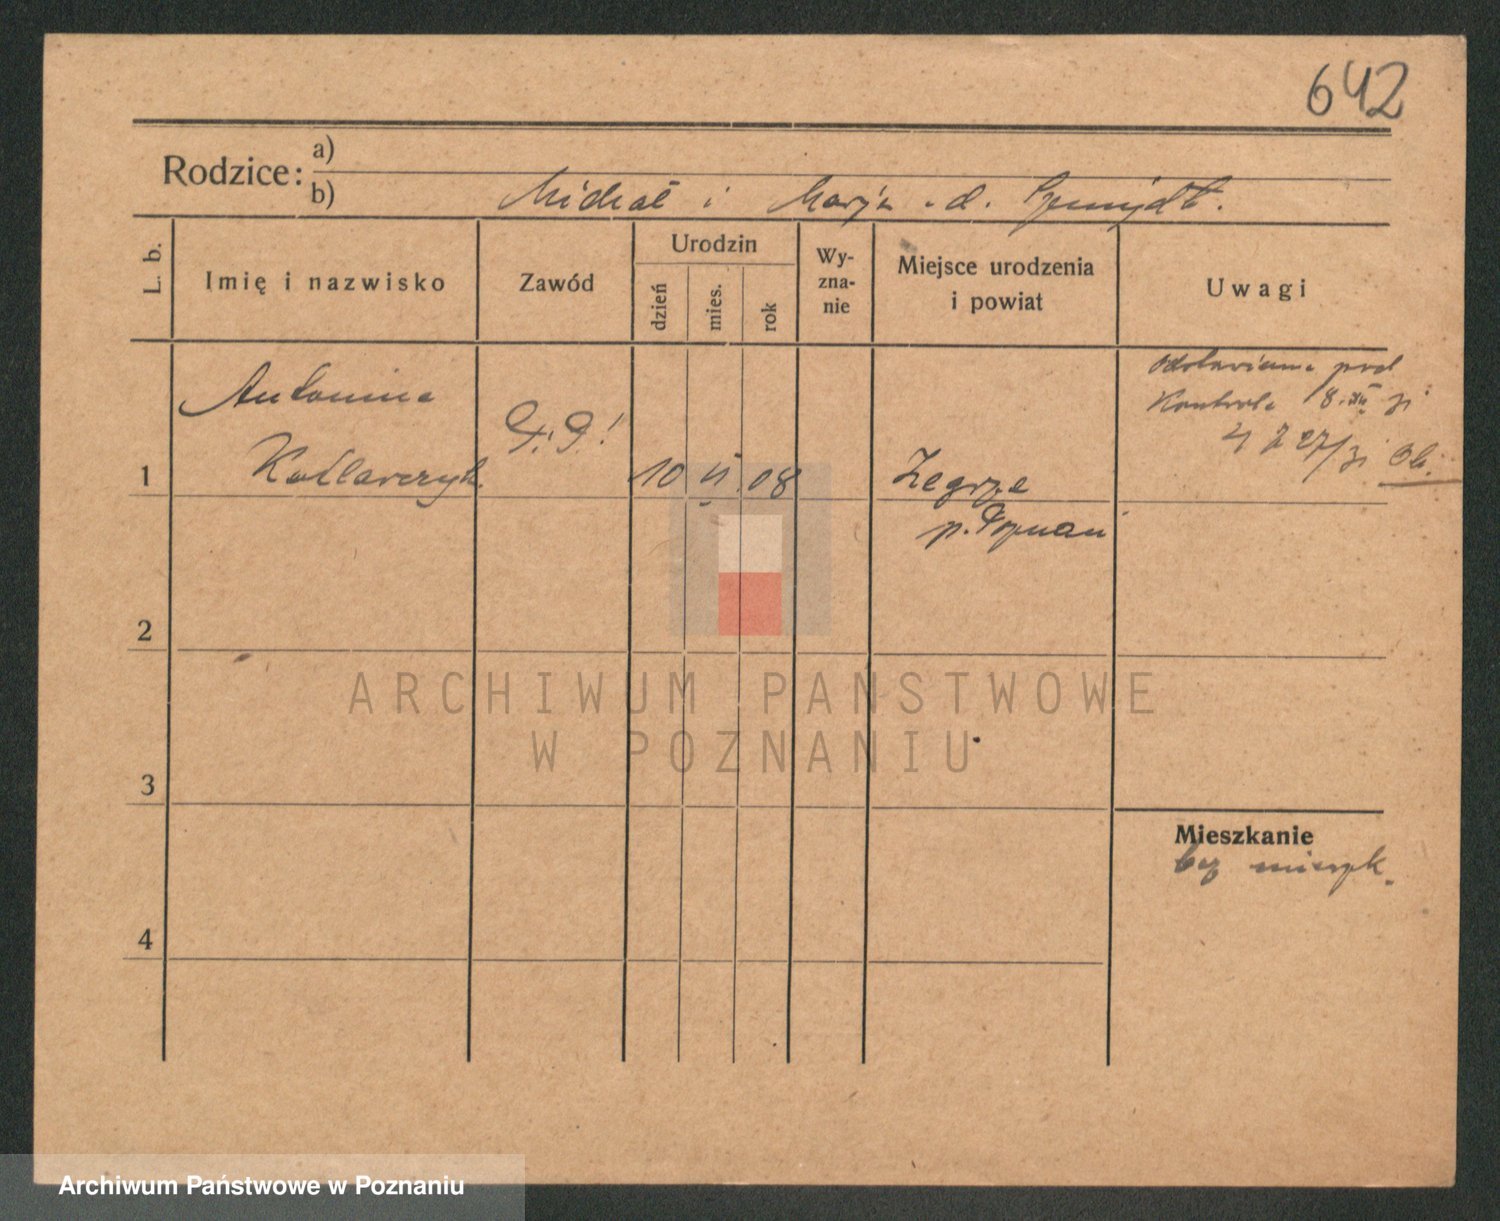 642
Rodzice:
a)
b) Michał i Marja z d. Szmydt.
L. b.
Imię i nazwisko
Zawód
Urodzin
dzień
mies.
rok
Wy-
zna-
nie
Miejsce urodzenia
i powiat
Uwagi
Antonina
1 Kotlarczyk 10 VI 08 Zegrze
p. Poznań
Odstawiona pod
Kontrolę 8.XII 31
2
3
4
Mieszkanie
bez mieszk.
ARCHIWUM PAŃSTWOWE
W POZNANIU
Archiwum Państwowe w Poznaniu